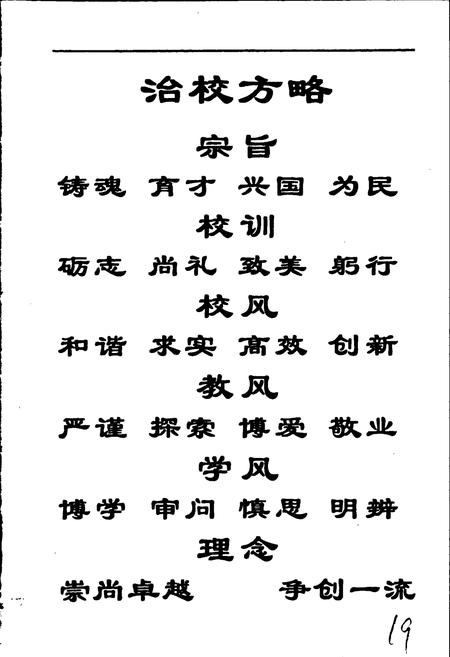 治校方略
宗旨
铸魂 育才 兴国 为民
校训
砺志 尚礼 致美 躬行
校风
和谐 求实 高效 创新
教风
严谨 探索 博爱 敬业
学风
博学 审问 慎思 明辨
理念
崇尚卓越 争创一流
19